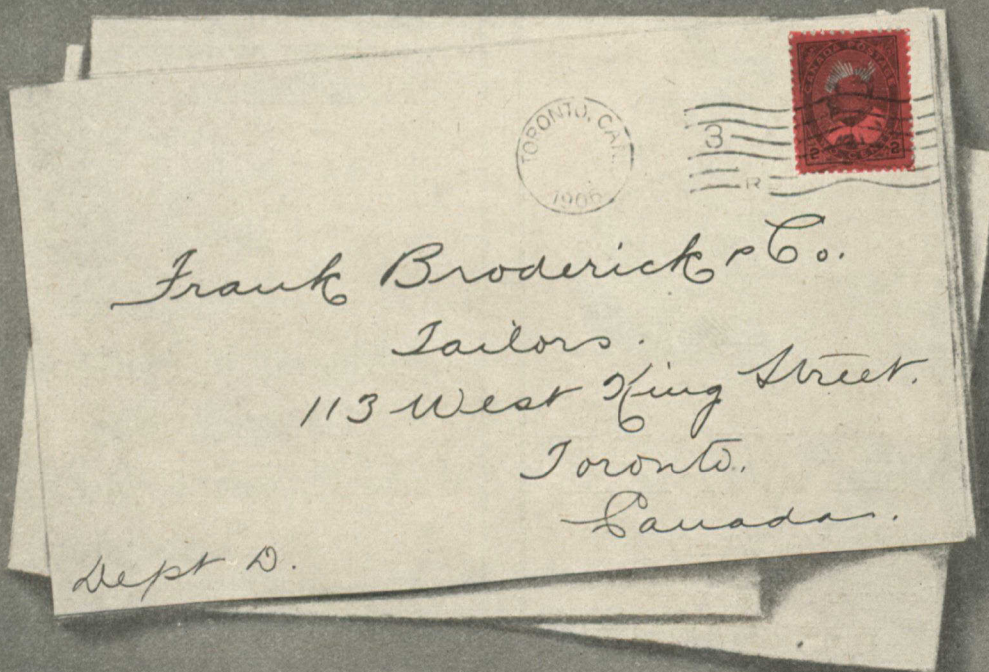 TORONTO, CAN.
1906
3
R
CANADA POSTAGE
2 CENTS 2
Frank Broderick & Co.
Tailors.
113 West King Street.
Toronto.
Canada.
Dept D.